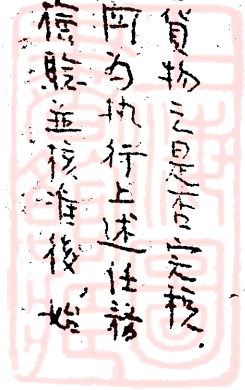 貨物之是否完税.
因为执行上述任務
檢驗並核准後,始